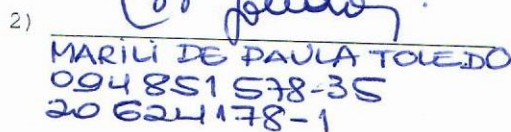 2)
MARILI DE PAULA TOLEDO
094 851 578-35
20 624 178-1